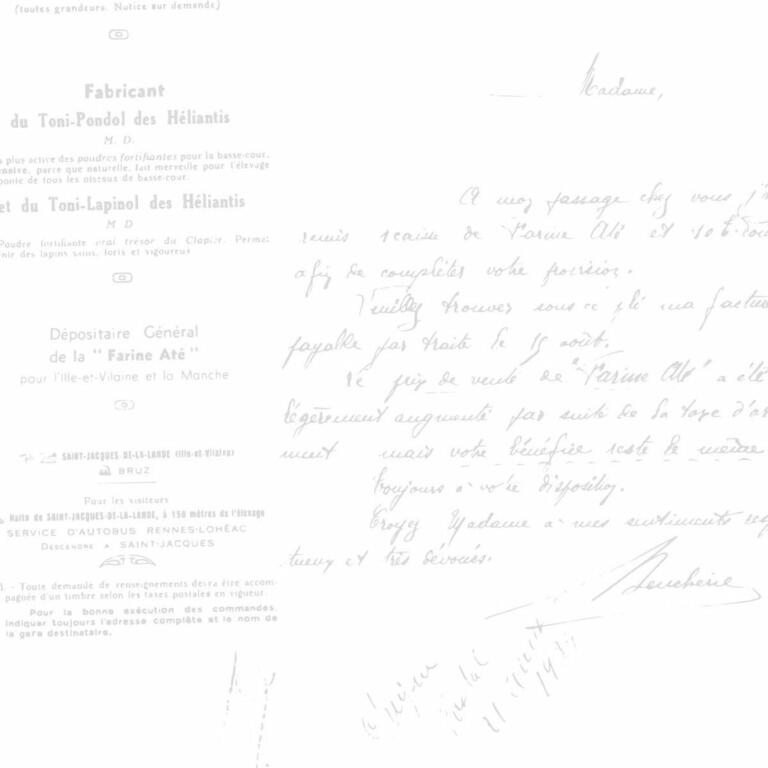 (toutes grandeurs. Notice sur demande)
Fabricant
du Toni-Pondol des Héliantis
M. D.
plus active des poudres fortifiantes pour la basse-cour,
parce que naturelle, fait merveille pour l'élevage
ponte de tous les oiseaux de basse-cour.
et du Toni-Lapinol des Héliantis
M D
Poudre fortifiante vrai trésor du Clapier. Permet
des lapins sains, forts et vigoureux
Dépositaire Général
de la " Farine Até "
pour l'Ille-et-Vilaine et la Manche
SAINT-JACQUES-DE-LA-LANDE (Ille-et-Vilaine)
BRUZ
Pour les visiteurs
Halte de SAINT-JACQUES-DE-LA-LANDE, à 150 mètres de l'élevage
SERVICE D'AUTOBUS RENNES-LOHÉAC
DESCENDRE A SAINT-JACQUES
- Toute demande de renseignements devra être accom-
pagnée d'un timbre selon les taxes postales en vigueur.
Pour la bonne exécution des commandes,
indiquer toujours l'adresse complète et le nom de
la gare destinataire.
Madame,
A mon passage chez vous j'ai
remis 1 caisse de Farine Até et 10
afin de compléter votre provision.
Veuillez trouver sous ce pli ma facture
payable par traite le 15 août.
Le prix de vente de "Farine Até" a été
légèrement augmenté par suite de la taxe d'ar
ment mais votre bénéfice reste le même
Toujours à votre disposition.
Croyez Madame à mes sentiments resp
tueux et très dévoués.